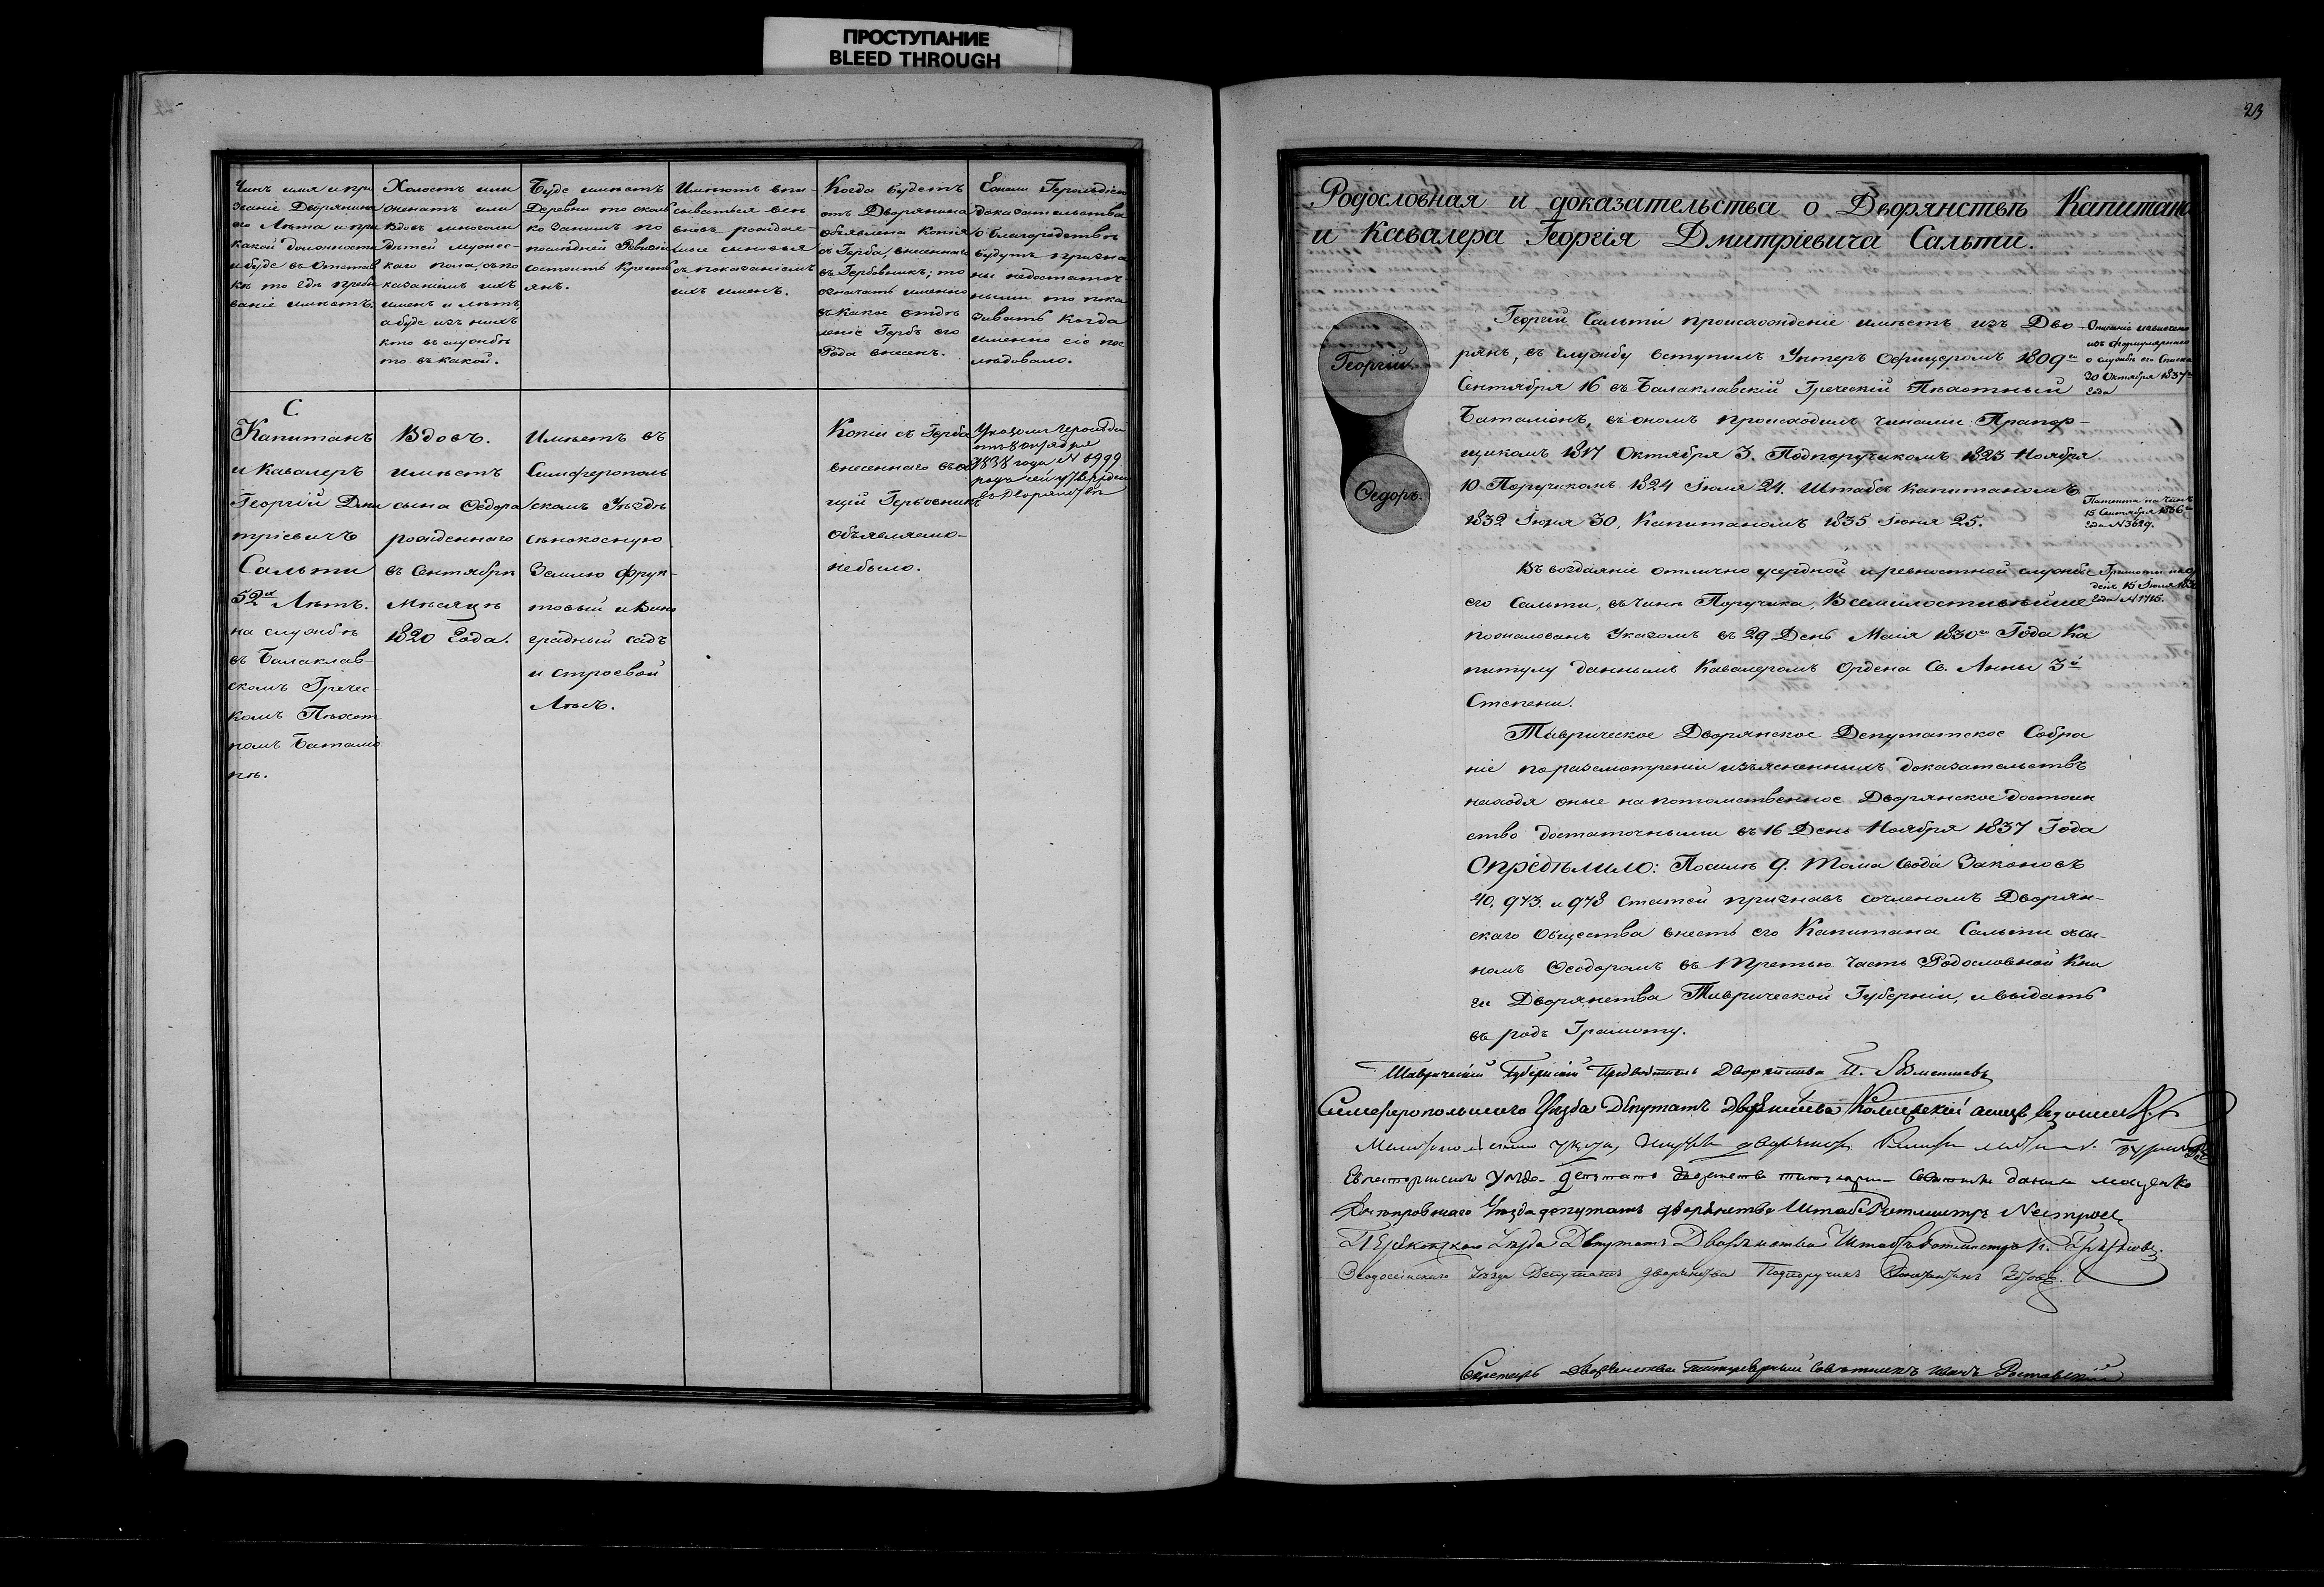 ПРОСТУПАНИЕ
BLEED THROUGH
23
Чинъ имя и про
званіе Дворянина
его Лѣта и при
какой должности
и буде въ Отстав
кѣ то гдѣ пребы
ваніе имѣетъ.
Холостъ или
женатъ или
вдовъ многоли
дѣтей мужес-
каго пола, съ по
казаніемъ ихъ
именъ и лѣтъ,
а буде изъ нихъ
кто въ службѣ
то въ какой.
Буде имѣетъ
Деревни то сколь
ко за нимъ по
послѣдней Ревизіи
состоитъ Крестъ
янъ.
Имѣютъ впи-
сываться всѣ
вновь рождае-
мые сыновья
съ показаніемъ
ихъ именъ.
Когда будетъ
отъ Дворянина
объявлена Копія
съ Герба, внесеннаго
въ Гербовникъ; то
означать именно
въ какое отдѣ
леніе Гербъ его
Рода внесенъ.
Ежели Герольдіею
доказательства
о благородствѣ
будутъ призна
ны недостаточ
ными то пока
зывать когда
именно сіе пос
лѣдовало.
С
Капитанъ
и Кавалеръ
Георгій Дми
тріевичъ
Сальти
52х Лѣтъ.
на службѣ
въ Балаклав-
скомъ Гречес-
комъ Пѣхот
номъ Баталіо
нѣ.
Вдовъ.
имѣетъ
сына Ѳедора
рожденнаго
въ Сентябрѣ
мѣсяцѣ
1820 Года.
Имѣетъ въ
Симферополь
скомъ Уѣздѣ
сѣнокосную
Землю фрук-
товый и Вино
градный садъ
и строевой
Лѣсъ.
Копіи съ Герба
внесеннаго въ об
щій Гербовникъ
объявляемо-
небыло.
Указомъ Герольдіи
1838 года N 6999
родъ сей утвержденъ
въ Дворянствѣ
Родословная и доказательства о Дворянствѣ Капитана
и Кавалера Георгія Дмитріевича Сальти.
Георгій.
Ѳедоръ.
Георгій Сальти происхожденіе имѣетъ изъ Дво-
рянъ, въ службу вступилъ Унтеръ Офицеромъ 1809го
Сентября 16 въ Балаклавскій Греческій Пѣхотный
Баталіонъ, въ ономъ происходилъ чинами: Прапор-
щикомъ 1817 Октября 3. Подпоручикомъ 1823 Ноября
10 Поручикомъ 1824 Іюля 24. Штабсъ Капитаномъ
1832 Іюня 30, Капитаномъ 1835 Іюня 25.
Описаніе извлечено
изъ формулярнаго
о службѣ его Списка
30 Октября 1837го
Года
Патента на Чинъ
15 Сентября 1836го
Года N 3629.
Въ воздаяніе отлично усердной и ревностной службы
его Сальти, въ чинѣ Поручика, Всемилостивѣйше
пожалованъ Указомъ въ 29 День Маія 1830го Года Ка
питулу даннымъ Кавалеромъ Ордена Св. Анны 3й
Степени.
Грамоты на ор
денъ 15 Іюля
Года N 1715.
Таврическое Дворянское Депутатское Собра
ніе по разсмотреніи изъясненныхъ доказательствъ
находя оные на потомственное Дворянское достоин
ство достаточными въ 16 День Ноября 1837 Года
Опредѣлило: По силѣ 9. Тома Свода Законовъ
40, 973. и 978 Статей признавъ сочленомъ Дворян-
скаго Общества внесть его Капитана Сальти съ сы-
номъ Ѳеодоромъ въ Третью Часть Родословной Кни
ги Дворянства Таврической Губерніи, и выдать
въ родъ Грамоту.
Таврическій Губернскій Предводитель Дворянства
Симферопольскаго Уѣзда Депутатъ Дворянства
Мелитопольскаго уѣзда,
Евпаторійскаго Уѣзда депутатъ дворянства
Днѣпровскаго Уѣзда депутатъ дворянства Штабсъ Ротмистръ
Перекопскаго Уѣзда Депутатъ Дворянства Штабсъ Ротмистръ
Ѳеодосійскаго Уѣзда Депутатъ дворянства Подпоручикъ
Секретарь Дворянства Титулярный Совѣтникъ Иванъ